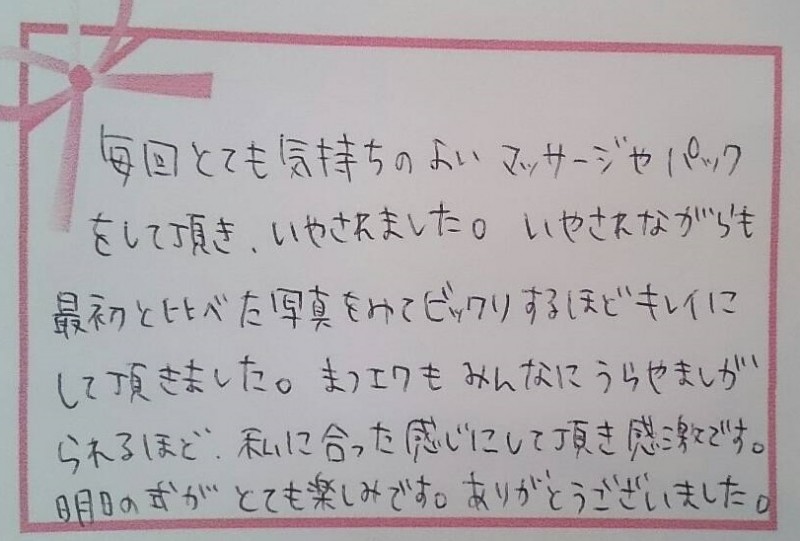 毎回とても気持ちのよいマッサージやパック
をして頂き、いやされました。いやされながらも
最初と比べた写真をみてビックリするほどキレイに
して頂きました。まつエクもみんなにうらやましが
られるほど、私に合った感じにして頂き感激です。
明日の式がとても楽しみです。ありがとうございました。